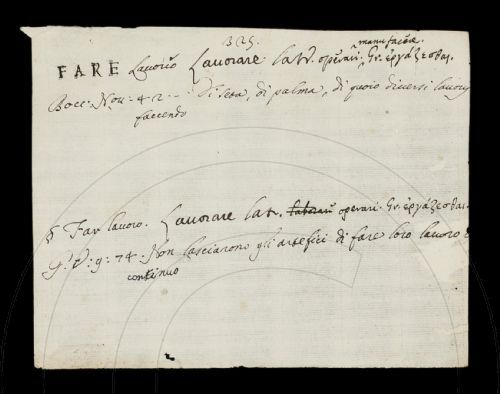 325.
manu facere.
FARE Lavorio Lavorare lat. operari. Gr. ἐργάζεσθαι.
Bocc: Nov: 42 ... di seta, di palma, di quoio diversi lavorij
faccendo
§ Far lavoro. Lavorare lat. operari. Gr. ἐργάζεσθαι.
G: V: 9: 74. Non lasciarono gli artefici di fare loro lavoro
continuo